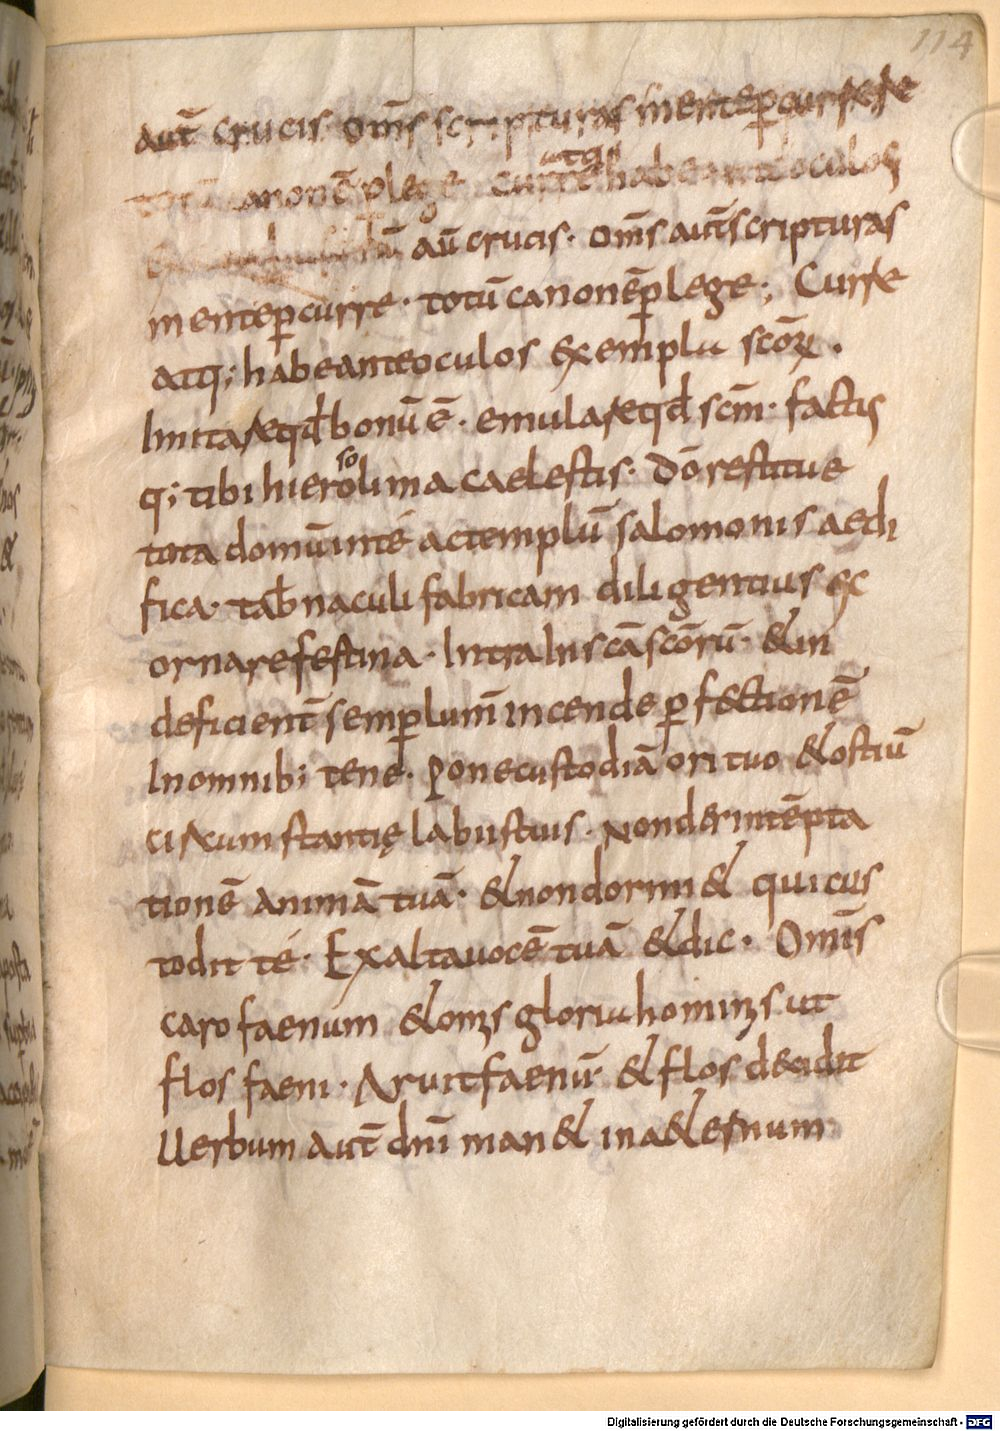 114
aut̄ crucis. om̄s scripturas mente ꝑcurrere
totū canonē ꝑlege curre atq; habe ante oculos
aūt crucis. om̄s aut̄ scripturas
mente ꝑcurre. totū canonē ꝑlege; Curre
atq; habe ante oculos exempla scōꝝ.
Imitare qd̄ bonū ē. emulare qd̄ scm̄. factis
q; tibi hierosolima caelestis. dō restitue
tota domū in té ac templū salomonis aedi
fica. tab̄naculi fabricam diligentius ec
ornare festina. Intra In scā scōrū. & in
deficient̄ semꝑ lum̄ incende ꝑfectionē
In omnib; tene. Pone custodiā ori tuo & ostiū
circumstantię labiis tuis. Non der in tēpta
tionē animā tuā. & non dormi& qui cus
todit té. Exalta uocē tuā & dic. Om̄is
caro faenum & om̄s gloria hominis ut
flos faeni. Aruit faenū & flos decidit
Uerbum aut̄ dn̄i man& in a&ernum
Digitalisierung gefördert durch die Deutsche Forschungsgemeinschaft - DFG